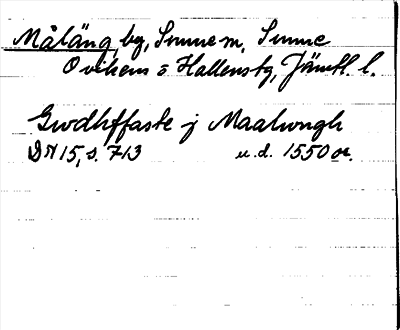 Målång by, Sunne sn, Sunne
Ovikens o Hallens tg, Jämtl. l.
Gwdhffaste j Maalwngh
DN 15, s. 713 u.d. 1550 or.